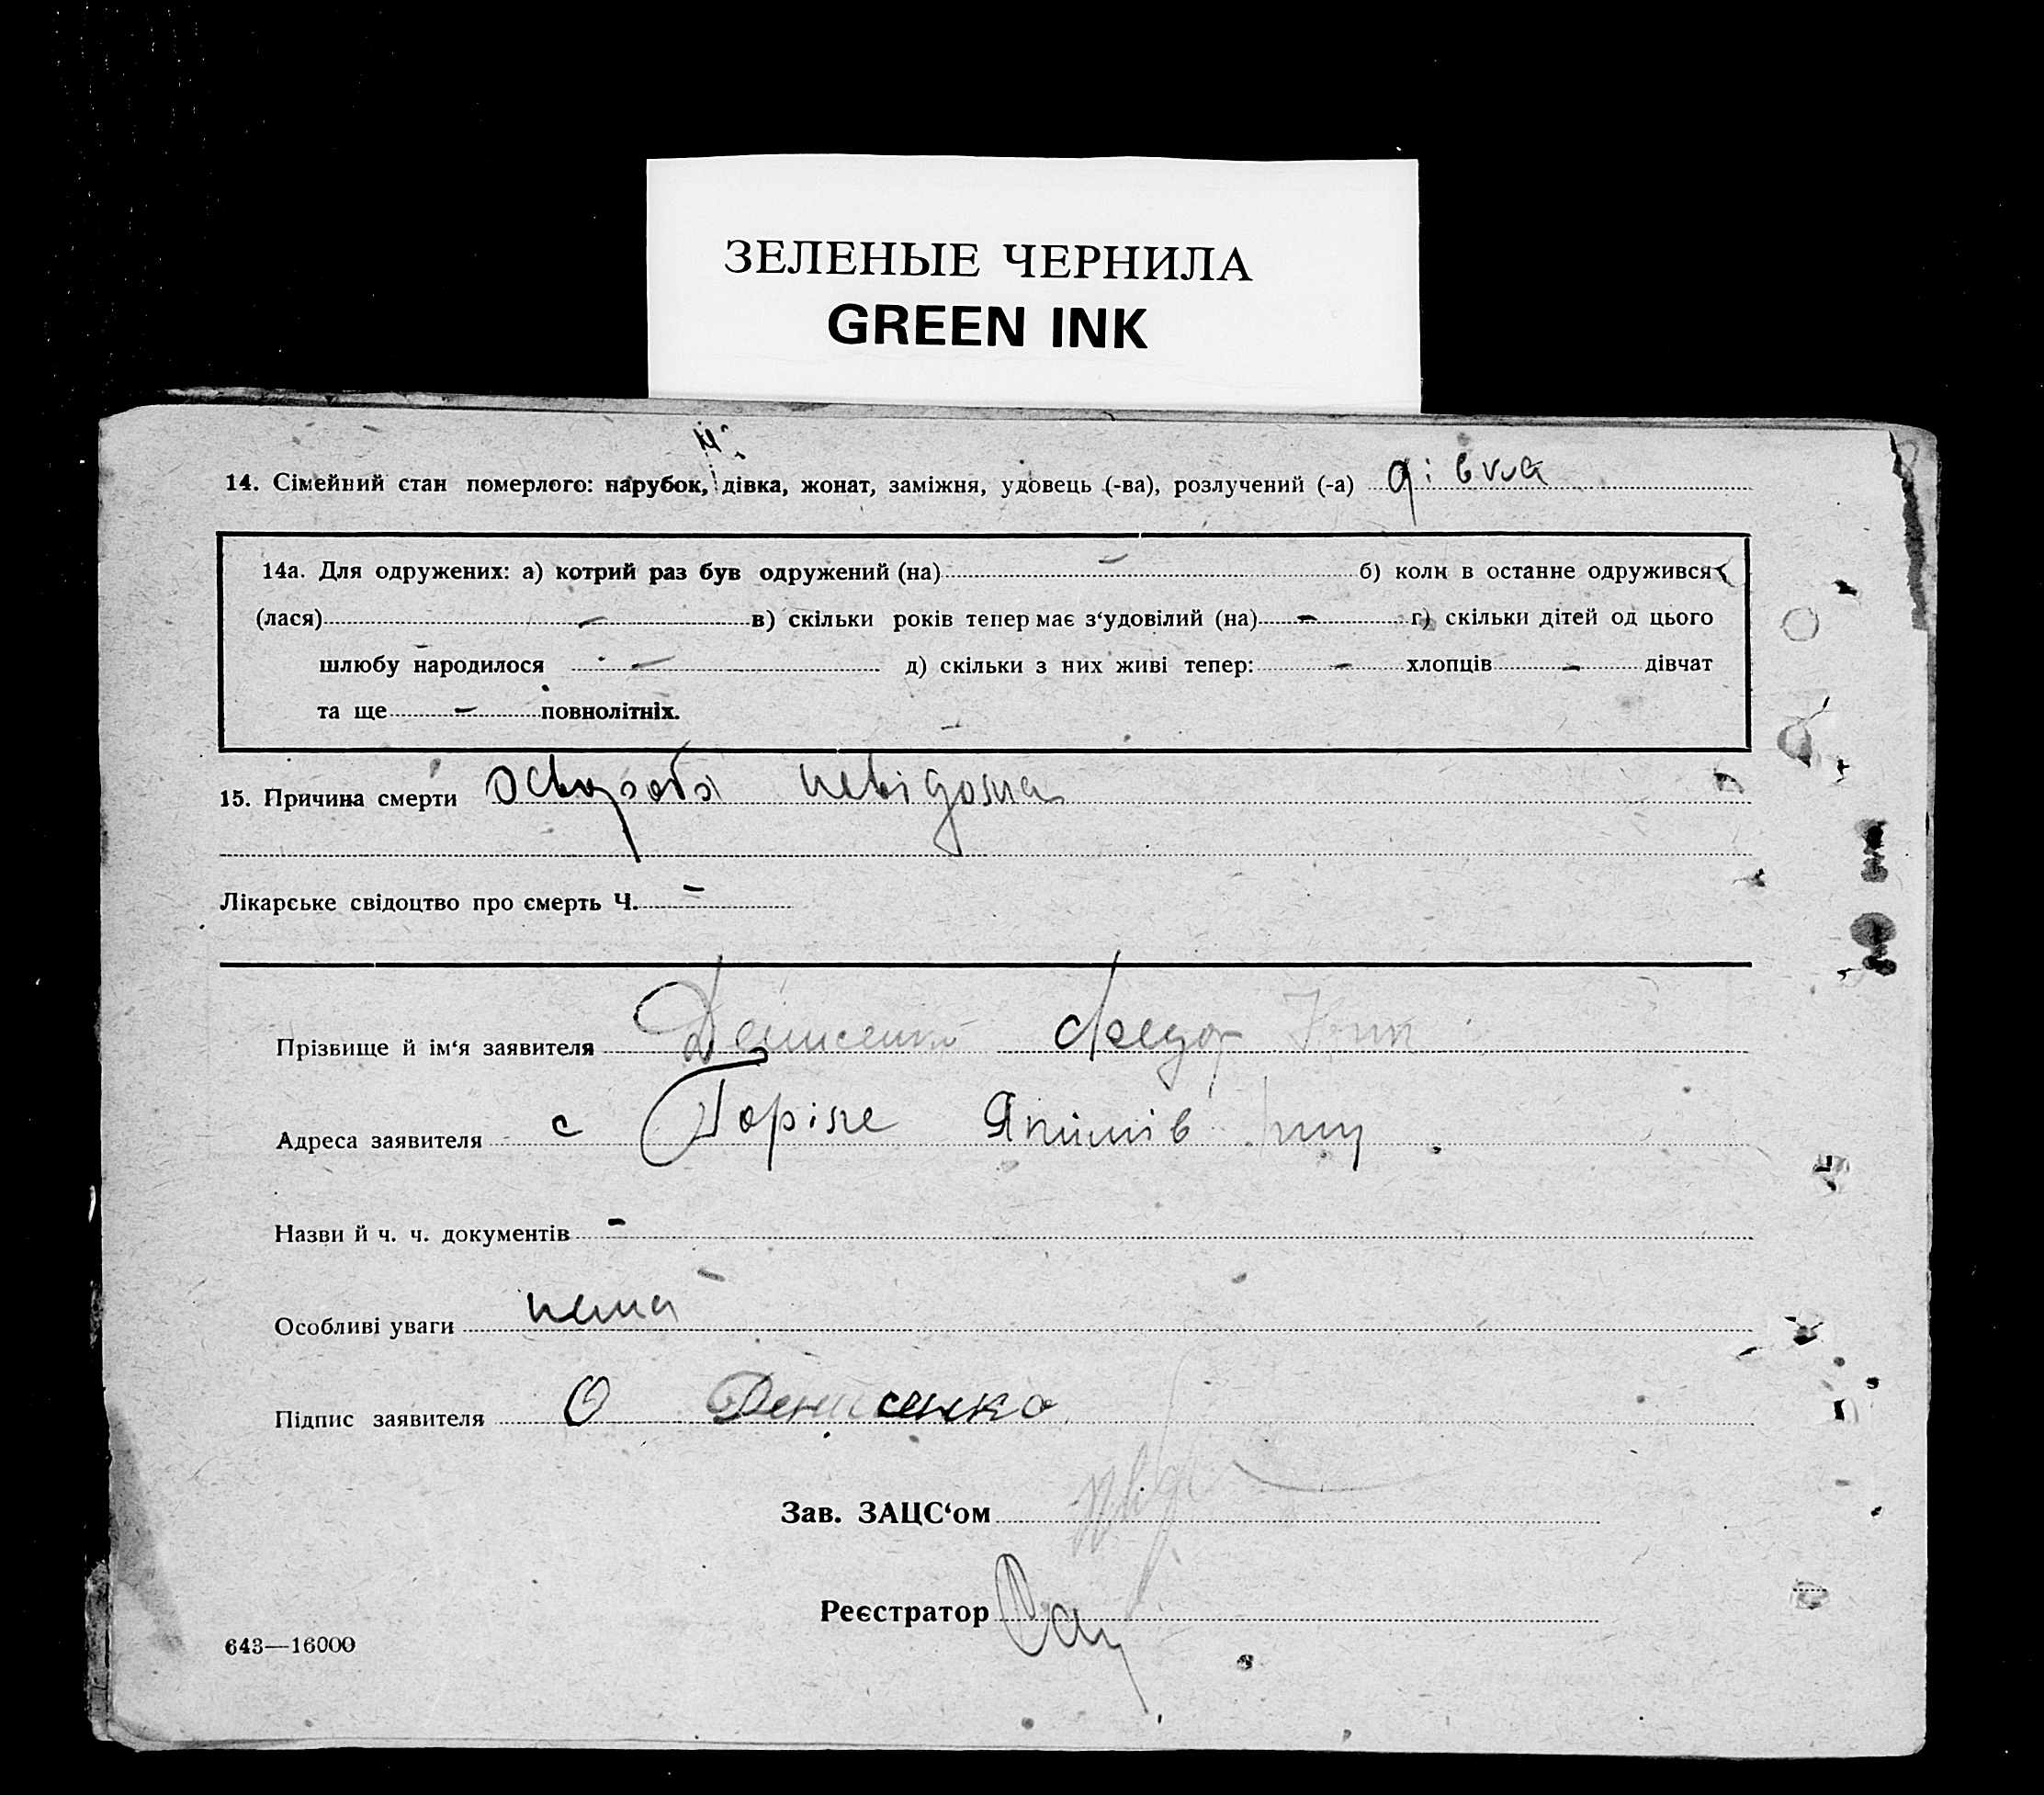 ЗЕЛЕНЫЕ ЧЕРНИЛА
GREEN INK
14. Сімейний стан померлого: нарубок, дівка, жонат, заміжня, удовець (-ва), розлучений (-а) дівка
14а. Для одружених: а) котрий раз був одружений (на) – б) коли в останне одружився
(лася) – в) скільки років тепер має з‘удовілий (на) – г) скільки дітей од цього
шлюбу народилося – д) скільки з них живі тепер: – хлопців – дівчат
та ще – повнолітніх.
15. Причина смерти невідома
Лікарське свідоцтво про смерть Ч. –
Прізвище й ім‘я заявителя Денисенко Федор
Адреса заявителя с Горіле
Назви й ч. ч. документів –
Особливі уваги нема
Підпис заявителя О Денисенко
Зав. ЗАЦС‘ом
Реєстратор
643—16000